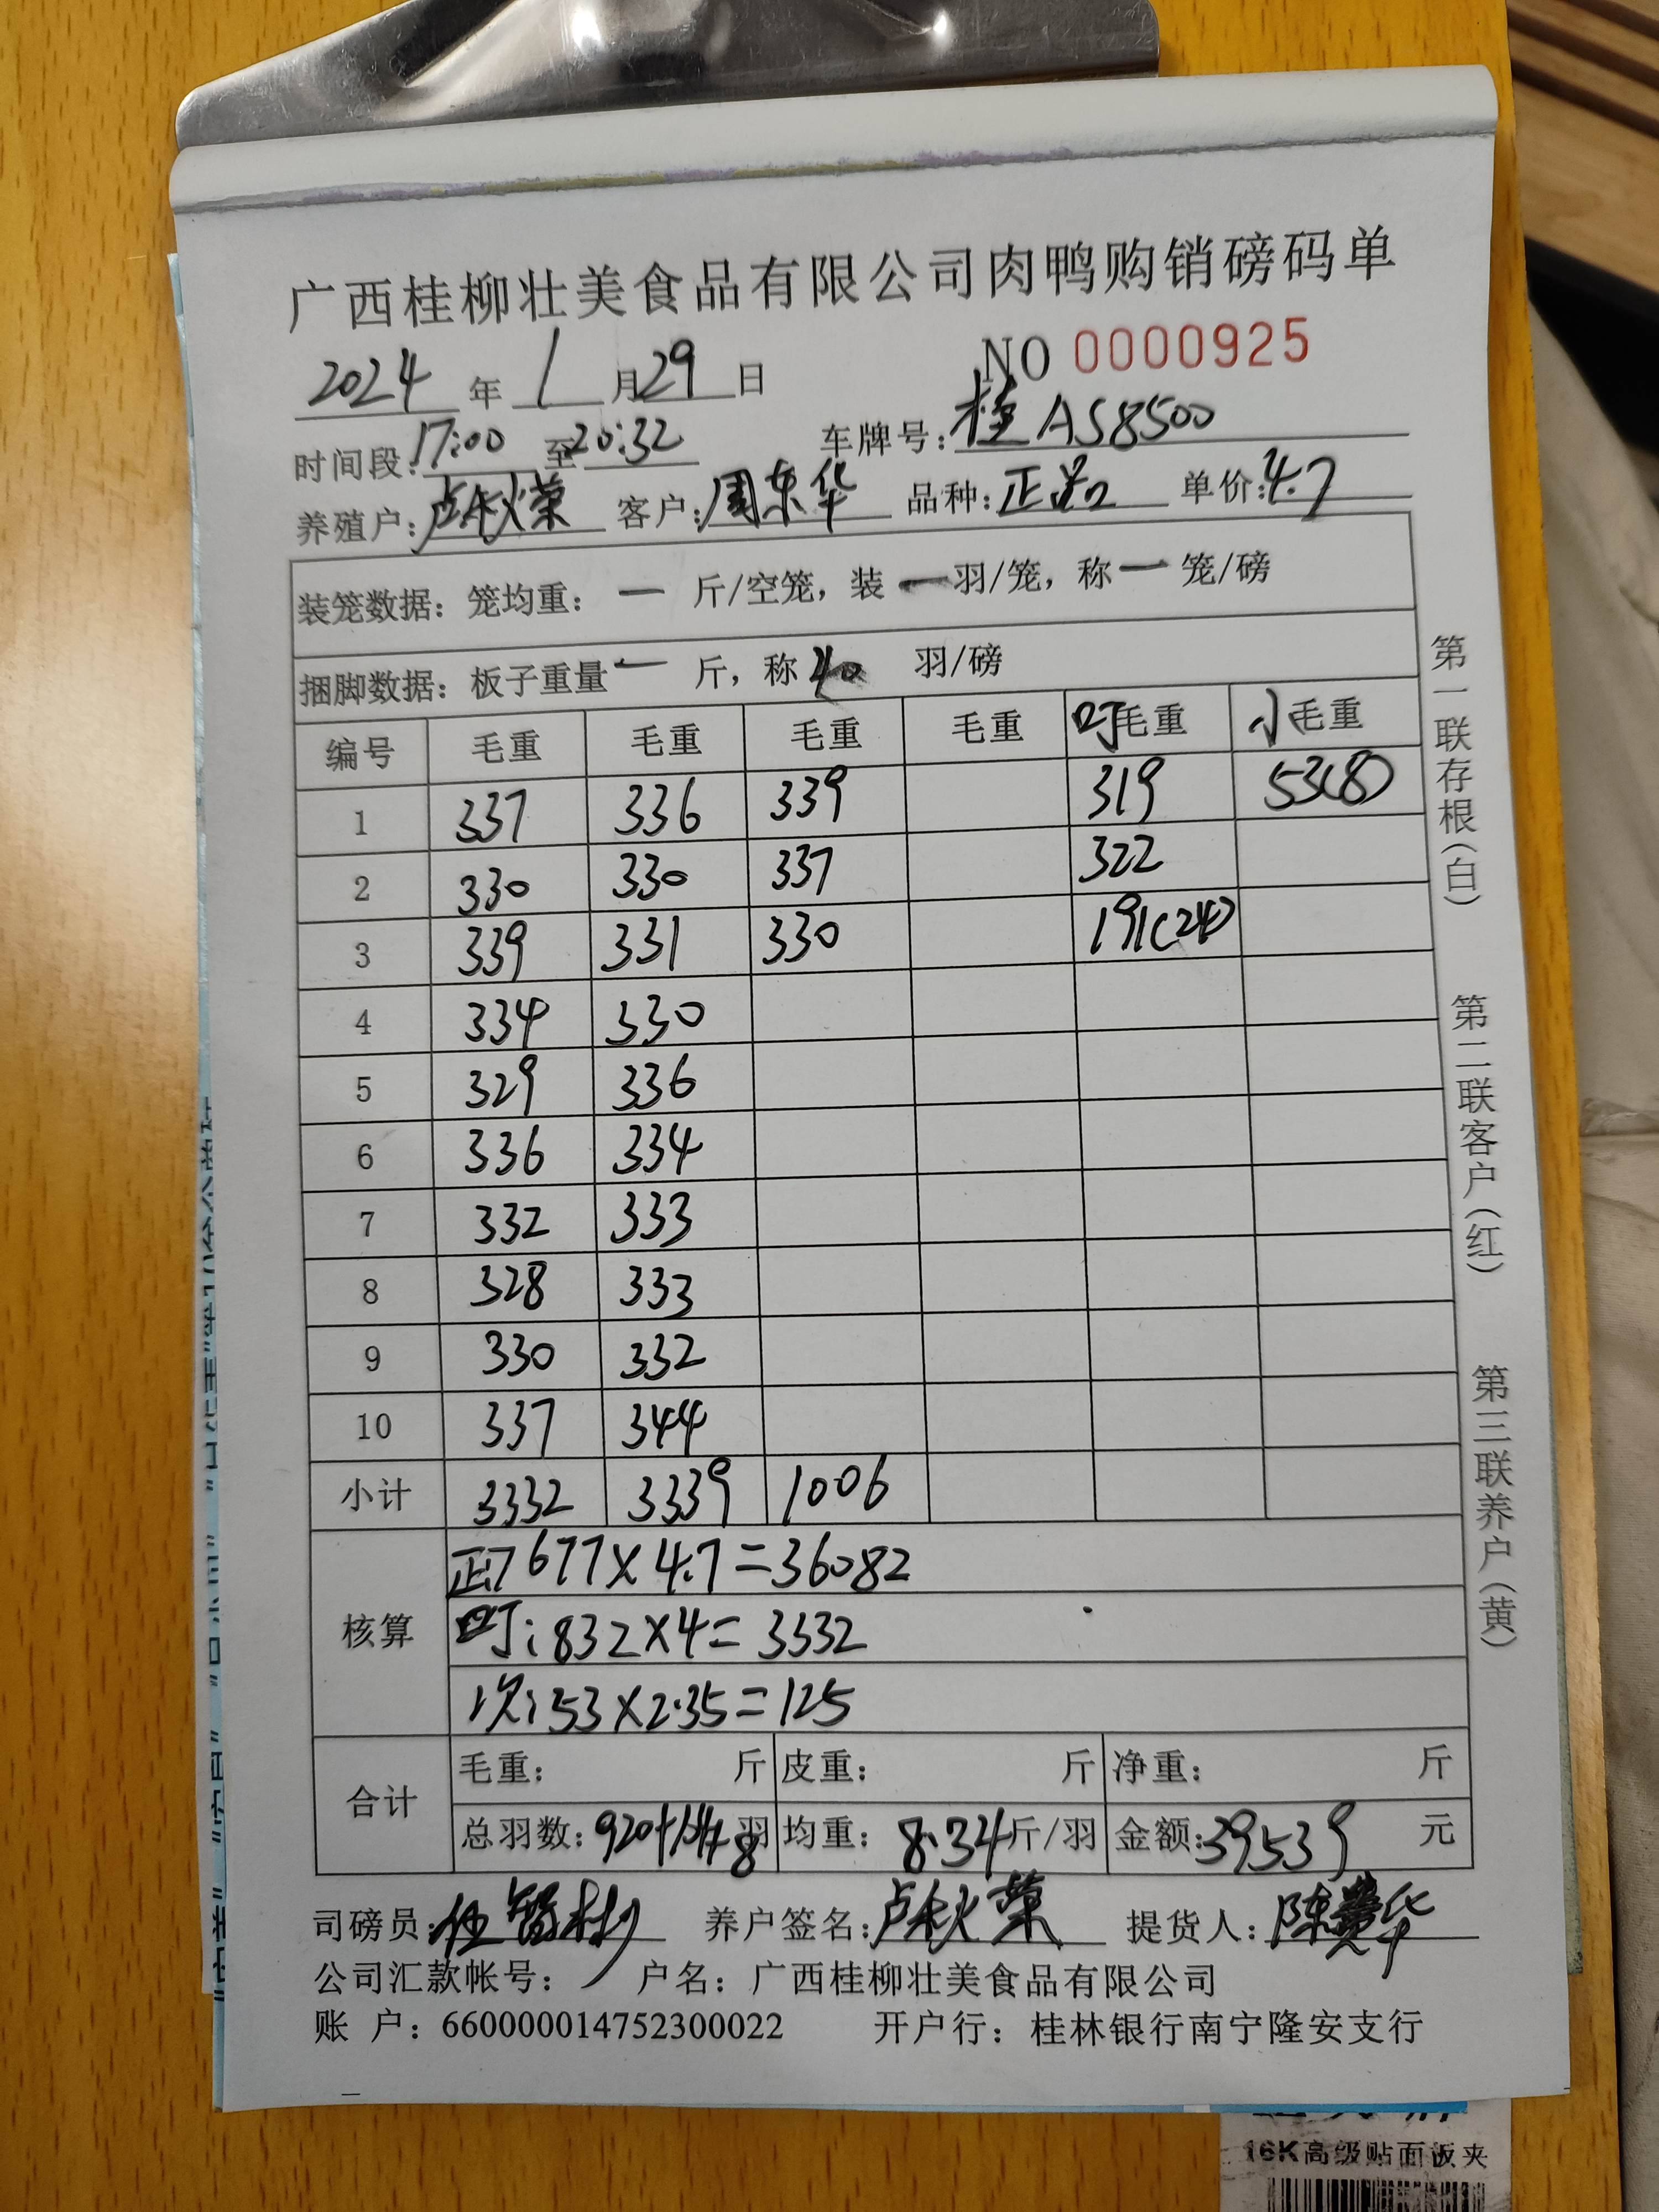 广西桂柳壮美食品有限公司肉鸭购销磅码单
2024 年 1 月 29 日 NO 0000925
时间段: 17:00 至 20:32 车牌号: 桂AS8500
养殖户: 卢秋荣 客户: 周东华 品种: 正品 单价: 4.7
装笼数据: 笼均重: 一 斤/空笼, 装 一 羽/笼, 称 一 笼/磅
捆脚数据: 板子重量 一 斤, 称 40 羽/磅
编号 毛重 毛重 毛重 毛重 叮毛重 小毛重
1 337 336 339 319 53(8)
2 330 330 337 322
3 339 331 330 191(24)
4 334 330
5 329 336
6 336 334
7 332 333
8 328 333
9 330 332
10 337 344
小计 3332 3339 1006
核算 正:7677×4.7=36082
叮:832×4=3332
次:53×2.35=125
合计 毛重: 斤 皮重: 斤 净重: 斤
总羽数: 920+104+8 羽 均重: 8.34 斤/羽 金额: 39539 元
司磅员: 养户签名: 卢秋荣 提货人:
公司汇款帐号: 户名: 广西桂柳壮美食品有限公司
账 户: 660000014752300022 开户行: 桂林银行南宁隆安支行
第一联存根(白) 第二联客户(红) 第三联养户(黄)
16K高级贴面板夹